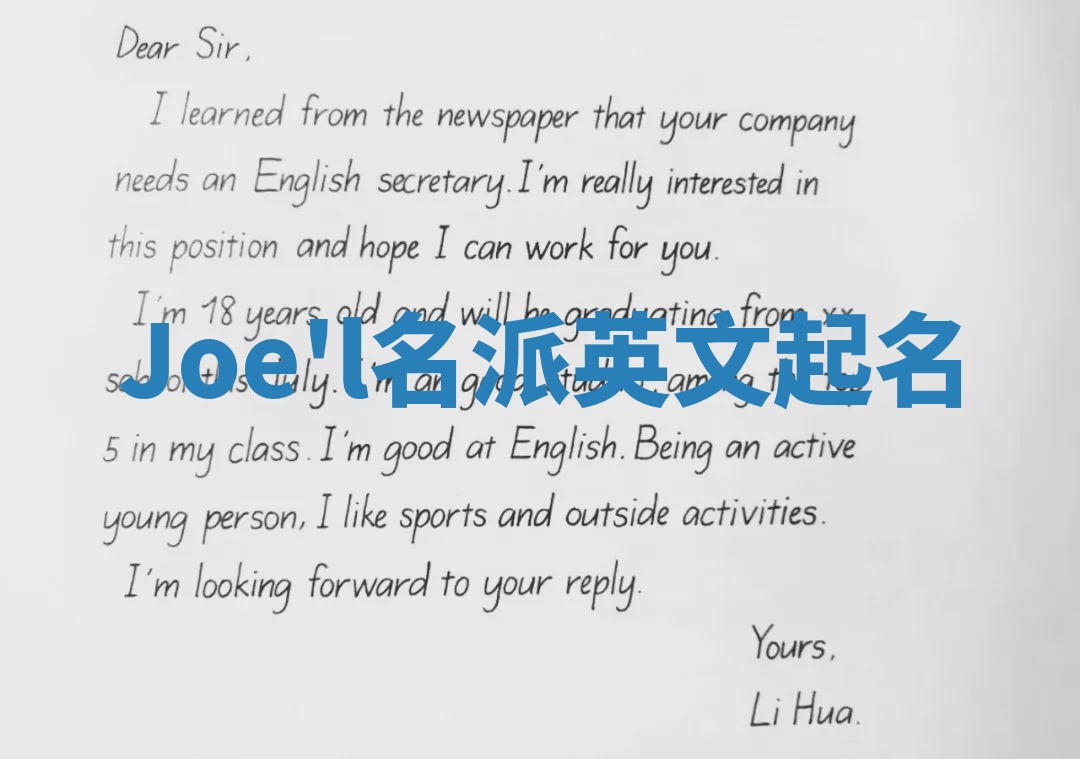 Dear Sir,
I learned from the newspaper that your company
needs an English secretary. I'm really interested in
this position and hope I can work for you.
I'm 18 years old and will be graduating from xx
Joe'l名派英文起名
July. I'm
5 in my class. I'm good at English. Being an active
young person, I like sports and outside activities.
I'm looking forward to your reply.
Yours,
Li Hua.